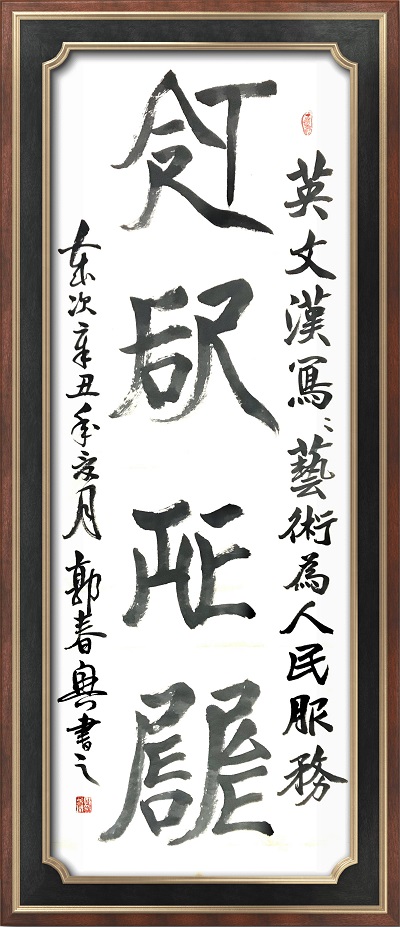 英文漢寫：藝術為人民服務
ART
FOR
THE
PEOPLE
歲次辛丑年夏月 郭春興書之